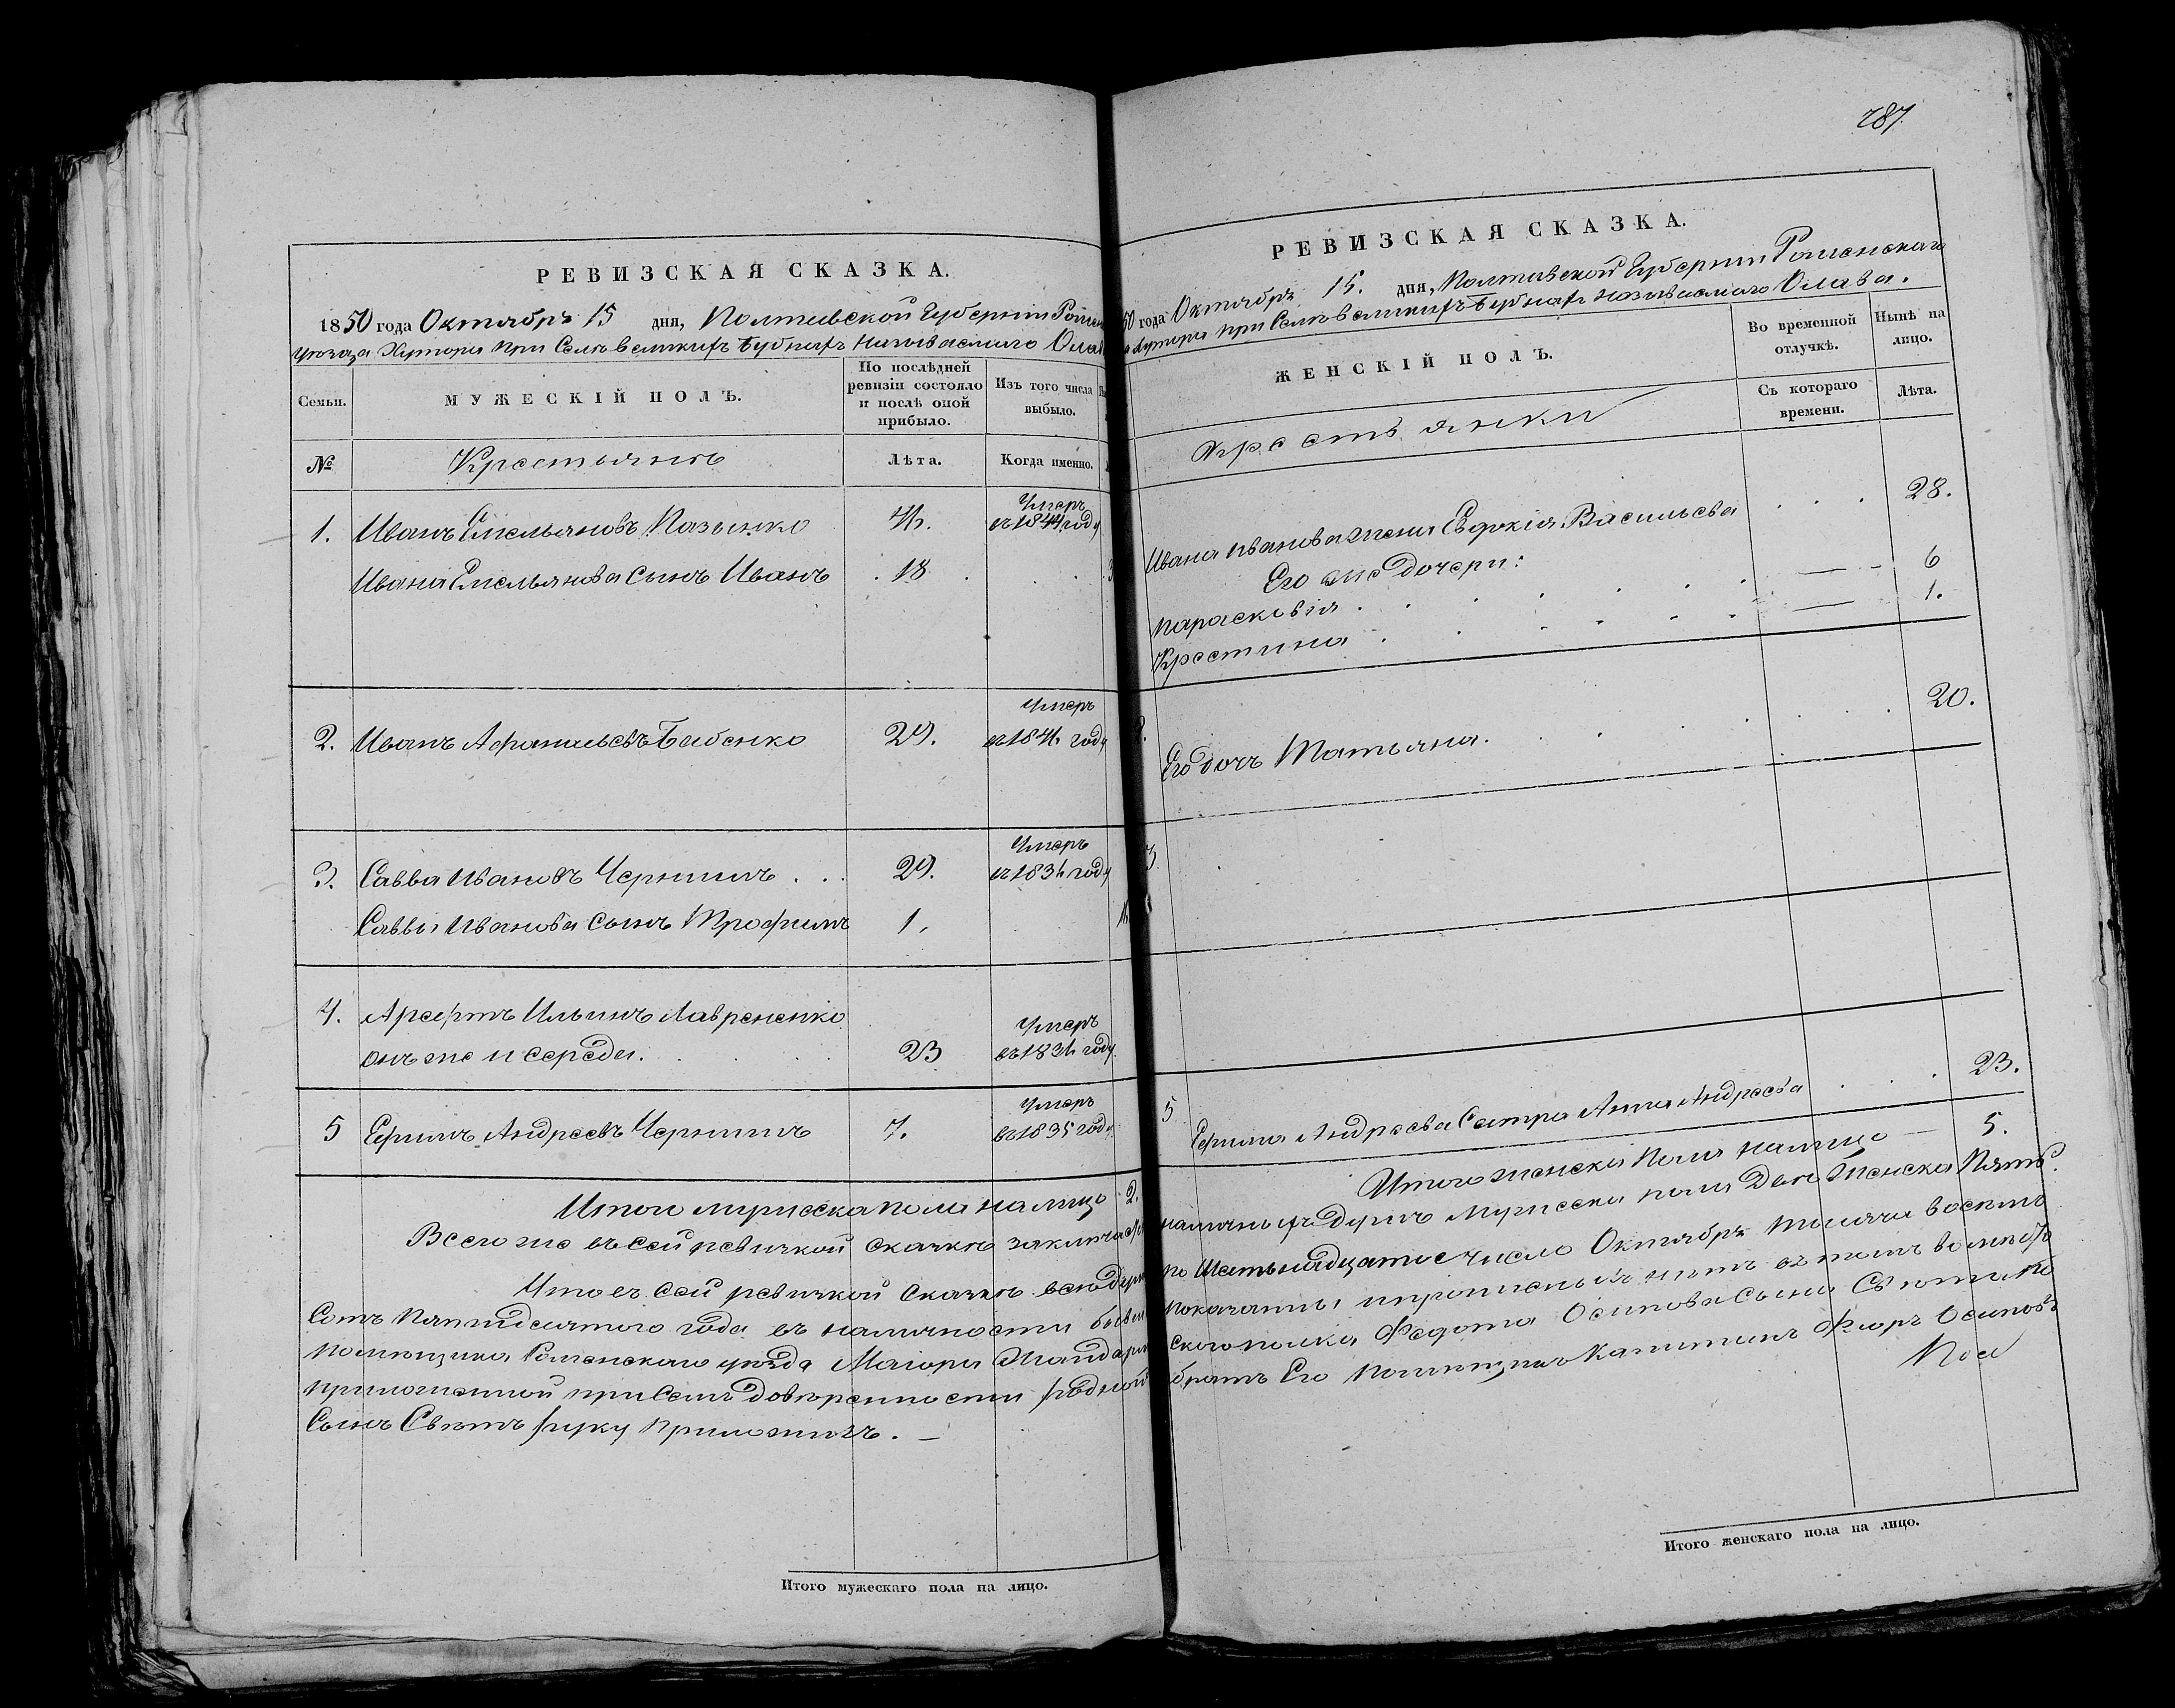 РЕВИЗСКАЯ СКАЗКА.
1850 года Октября 15 дня, Полтавской Губернии Ромен
уезда Хутора при Селе великихъ Бубнахъ называемаго
Семьи.
МУЖЕСКІЙ ПОЛЪ.
По послѣдней ревизіи состояло и послѣ оной прибыло.
Изъ того числа выбыло.
№
Крестьянъ
Лѣта.
Когда именно.
1. Иванъ Емельяновъ 
Умеръ въ 1844 году
Ивана Емельянова сынъ Иванъ 18
2. Иванъ Афанасьевъ Бабенко 29. Умеръ году
3. Савва Ивановъ Чернышъ 29. Умеръ году
Саввы Иванова сынъ Трофимъ 1.
4. Ильинъ Лавренко
онъ же и середа. 23 Умеръ году
5 Ефимъ Андреевъ Чернышъ 7. Умеръ въ 1835 году
Итого мужеска пола на лицо 2.
Всего же въ сей ревизкой сказкѣ
Что въ сей ревизкой сказкѣ все
Сотъ Пятидесятого года въ наличности
Помещика Роменскаго уезда Маіора
приложенной при семъ доверенности родной
Сынъ руку приложилъ. —
Итого мужескаго пола на лицо.
287
РЕВИЗСКАЯ СКАЗКА.
50 года Октября 15. дня, Полтавской Губерніи Роменскаго
Хутора при Селѣ великихъ Бубнахъ называемаго
ЖЕНСКІЙ ПОЛЪ.
Во временной отлучкѣ.
Нынѣ на лицо.
Съ котораго времени.
Лѣта.
Крестьянки
Ивана Иванова жена Евдокія Васильева 28.
Его же дочери:
Парасковія 6
Крестина 1.
2.
Его дочь Татьяна. 20.
3
5 Ефима Андреева Сестра Анна Андреева 23.
Итого женска пола налицо — 5.
наличныхъ душъ мужеска пола две женска Пять.
по Шестьнадцатое число Октября тысяча восемь
показаны и прописныхъ нетъ въ томъ
полка Федота Осипова Сына по
братъ Его помещикъ Капитанъ Осиповъ
Итого женскаго пола на лицо.